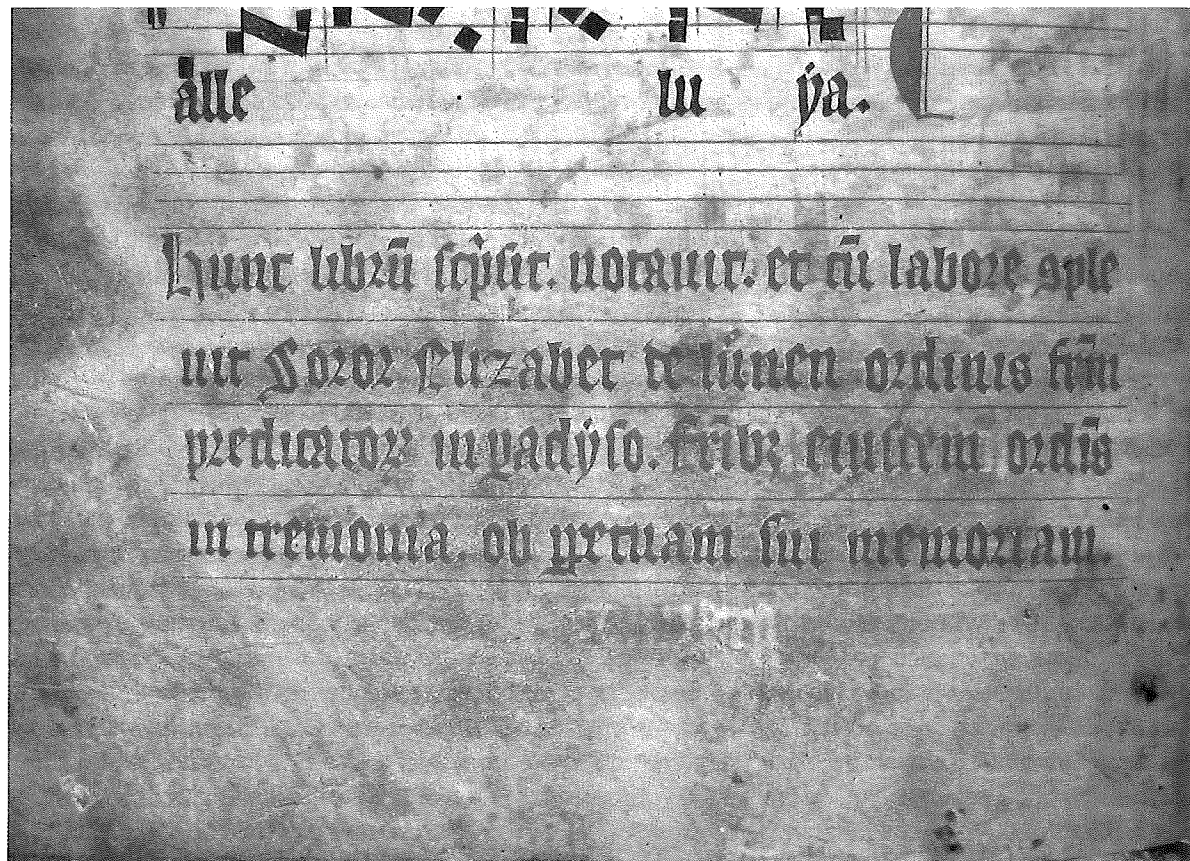 alle lu ẏa.
Hunc librū sc͛psit. notauit. et cū labore ꝯple
uit Soror Elizabet de lünen ordinis fr̄m
predicatoꝝ in paradẏso. fr̄ibꝫ eiusdem ordīs
in tremonia. ob ꝑpetuam sui memoriam